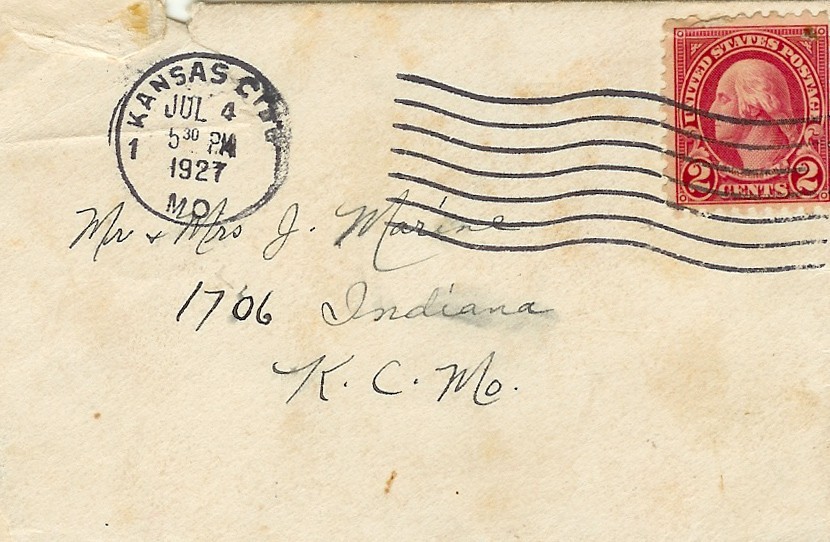 KANSAS CITY
JUL 4
5 30 PM
1
1927
MO.
UNITED STATES POSTAGE
2 CENTS 2
Mr + Mrs J. Marine
1706 Indiana
K. C. Mo.